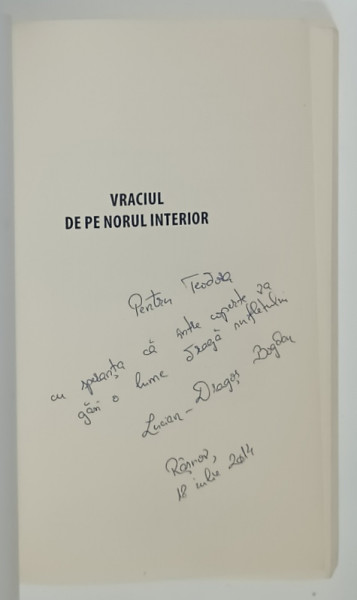 VRACIUL
DE PE NORUL INTERIOR
Pentru Teodora
cu speranța că între coperte va
găsi o lume dragă sufletului
Lucian-Dragoș Bogdan
Râșnov,
18 iulie 2014